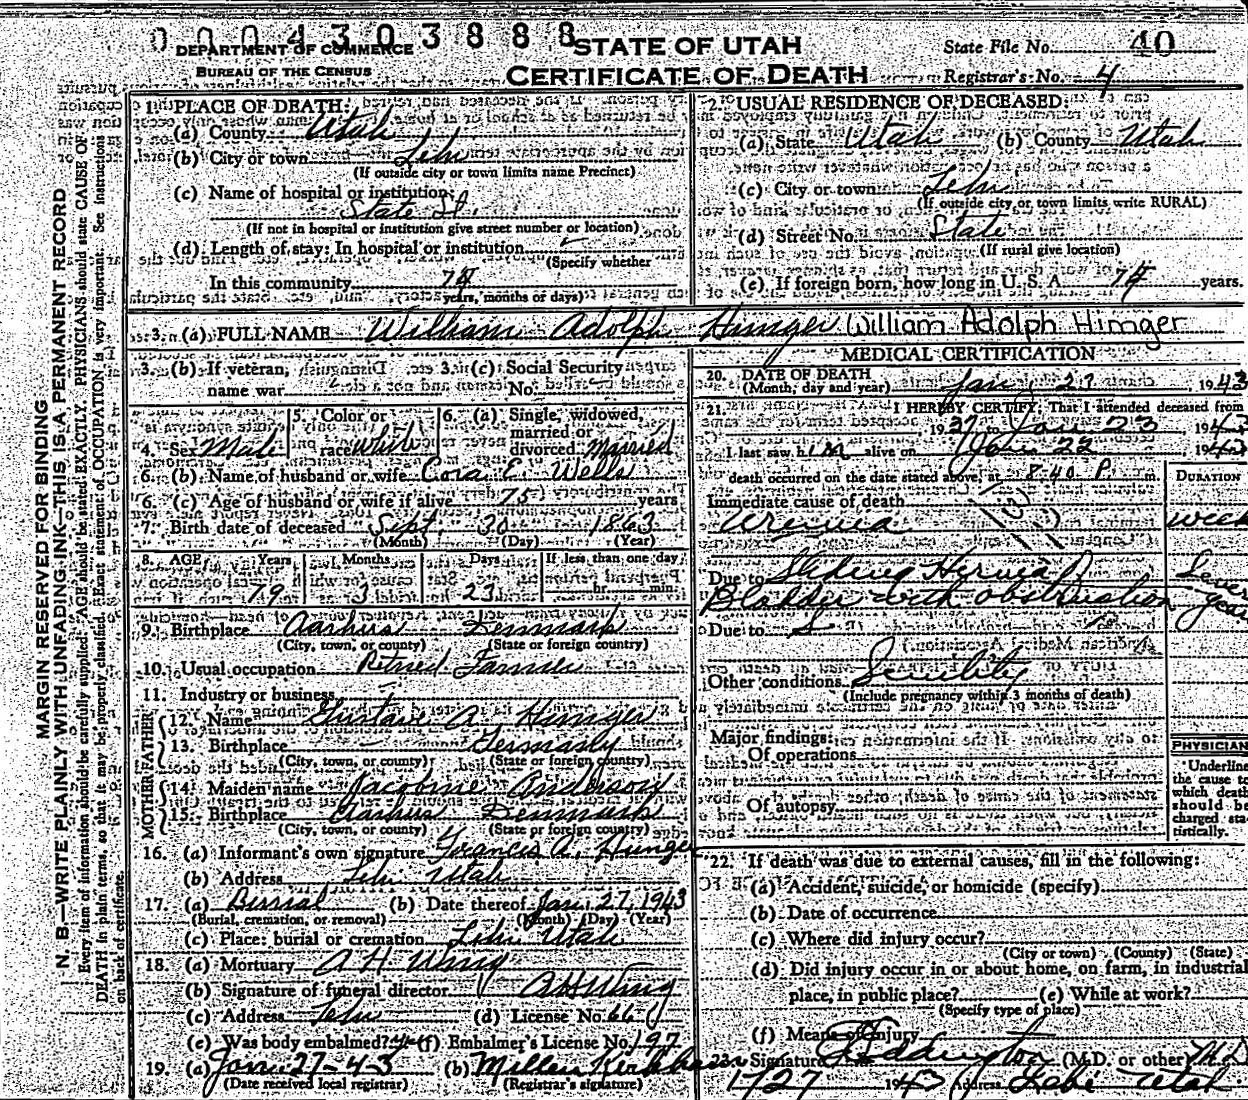 0004303888
DEPARTMENT OF COMMERCE
BUREAU OF THE CENSUS
STATE OF UTAH
CERTIFICATE OF DEATH
State File No. 40
Registrar's No. 4
MARGIN RESERVED FOR BINDING
N. B.—WRITE PLAINLY WITH UNFADING INK—THIS IS A PERMANENT RECORD
Every item of information should be carefully supplied. AGE should be stated EXACTLY. PHYSICIANS should state CAUSE OF
DEATH in plain terms, so that it may be properly classified. Exact statement of OCCUPATION is very important. See instructions
on back of certificate.
1. PLACE OF DEATH:
(a) County Utah
(b) City or town Lehi
(If outside city or town limits name Precinct)
(c) Name of hospital or institution:
State St.
(If not in hospital or institution give street number or location)
(d) Length of stay: In hospital or institution
(Specify whether
In this community 74
years, months or days)
2. USUAL RESIDENCE OF DECEASED:
(a) State Utah (b) County Utah
(c) City or town Lehi
(If outside city or town limits write RURAL)
(d) Street No. State
(If rural give location)
(e) If foreign born, how long in U. S. A. 74 years.
3. (a) FULL NAME William Adolph Himger William Adolph Himger
3. (b) If veteran,
name war
3. (c) Social Security
No.
4. Sex Male
5. Color or
race white
6. (a) Single, widowed,
married or
divorced Married
6. (b) Name of husband or wife Cora E. Wells
6. (c) Age of husband or wife if alive 75 years
7. Birth date of deceased Sept. 30 1863
(Month) (Day) (Year)
8. AGE Years Months Days If less than one day
79 3 23 hr. min.
9. Birthplace Aarhus Denmark
(City, town, or county) (State or foreign country)
10. Usual occupation Retired Farmer
11. Industry or business
FATHER
12. Name Gustave A. Himger
13. Birthplace Germany
(City, town, or county) (State or foreign country)
MOTHER
14. Maiden name Jacobine Anderson
15. Birthplace Aarhus Denmark
(City, town, or county) (State or foreign country)
16. (a) Informant's own signature Francis A. Hunger
(b) Address Lehi Utah
17. (a) Burial (b) Date thereof Jan. 27, 1943
(Burial, cremation, or removal) (Month) (Day) (Year)
(c) Place: burial or cremation Lehi Utah
18. (a) Mortuary A H Wing
(b) Signature of funeral director A H Wing
(c) Address Lehi (d) License No. 66
(e) Was body embalmed? (f) Embalmer's License No. 197
19. (a) Jan-27-43 (b)
(Date received local registrar) (Registrar's signature)
MEDICAL CERTIFICATION
20. DATE OF DEATH
(Month, day and year) Jan. 23, 1943
21. I HEREBY CERTIFY, That I attended deceased from
1937 to Jan 23 1943
I last saw him alive on Jan 22 1943
death occurred on the date stated above, at 8:40 P. m.
DURATION
Immediate cause of death
Uremia week
Due to Sliding Hernia
Bladder with obstruction
Due to
Other conditions Senility
(Include pregnancy within 3 months of death)
Major findings:
Of operations
Of autopsy
PHYSICIAN
Underline
the cause to
which death
should be
charged sta-
tistically.
22. If death was due to external causes, fill in the following:
(a) Accident, suicide, or homicide (specify)
(b) Date of occurrence
(c) Where did injury occur?
(City or town) (County) (State)
(d) Did injury occur in or about home, on farm, in industrial
place, in public place? (e) While at work?
(Specify type of place)
(f) Means of Injury
23. Signature Eddington (M.D. or other) M.D.
1/27 1943 Address Lehi Utah